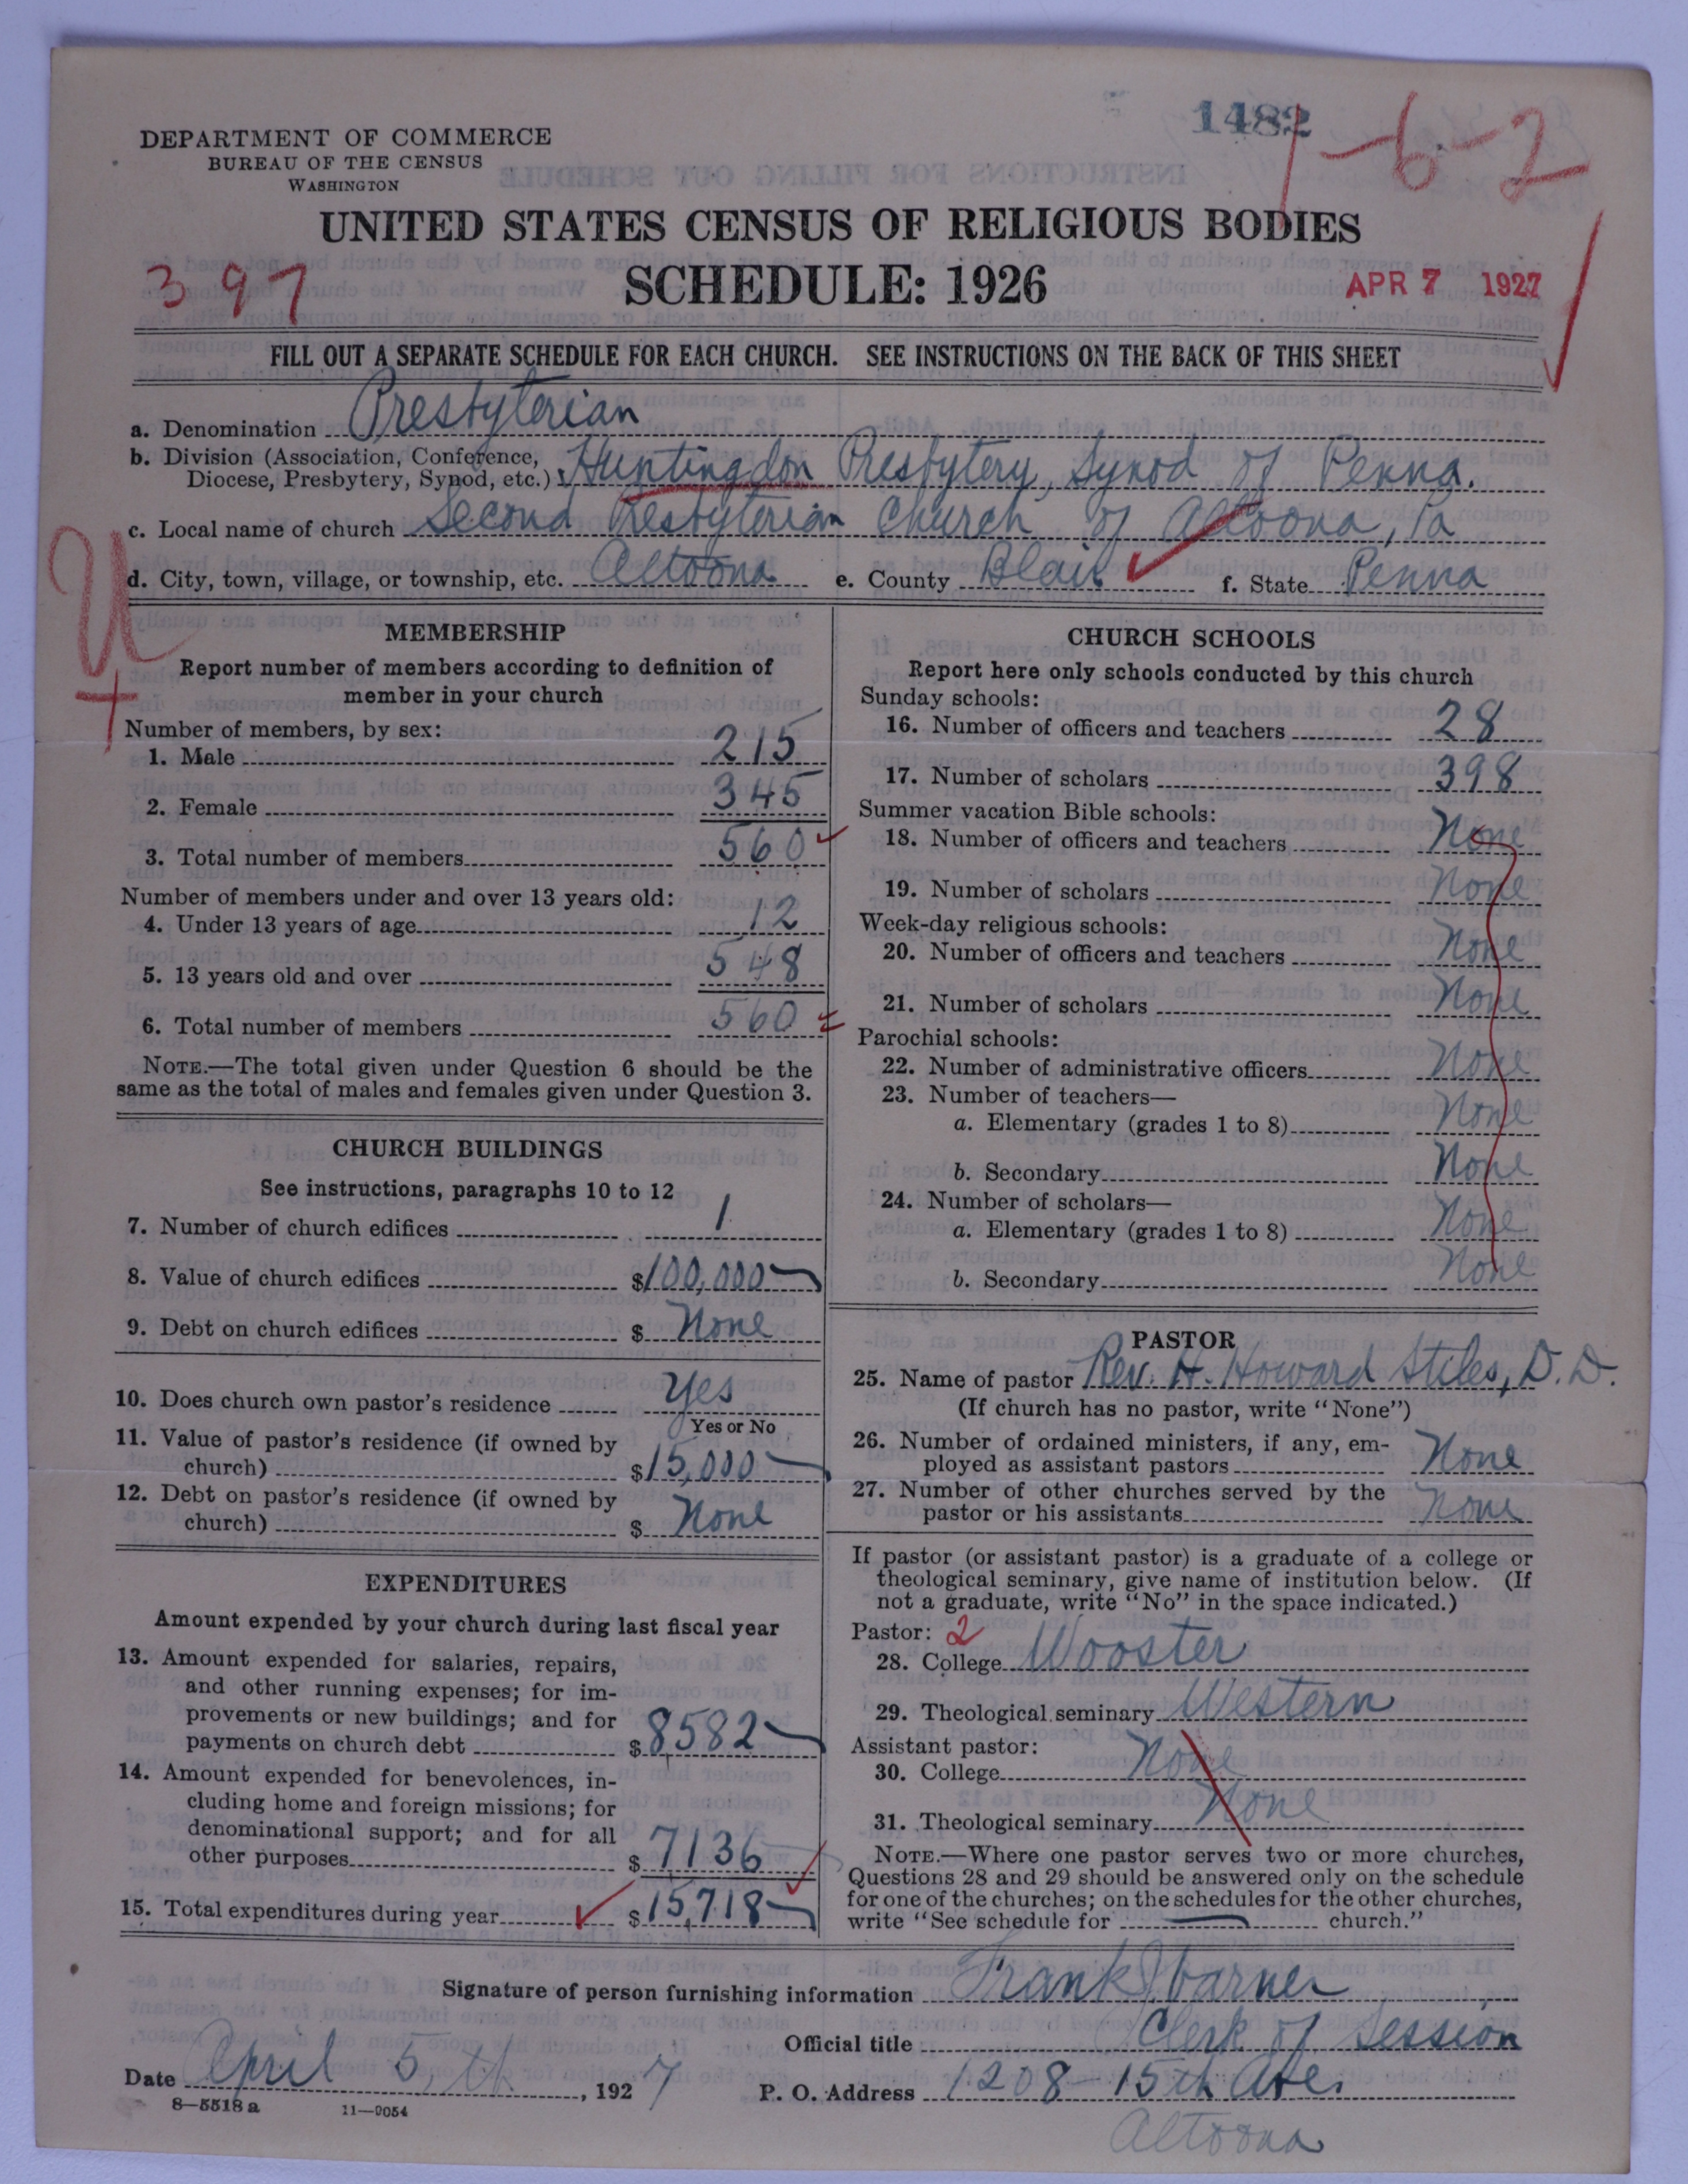 1482
1-6-2
DEPARTMENT OF COMMERCE
BUREAU OF THE CENSUS
WASHINGTON
UNITED STATES CENSUS OF RELIGIOUS BODIES
397
SCHEDULE: 1926
APR 7 1927
FILL OUT A SEPARATE SCHEDULE FOR EACH CHURCH. SEE INSTRUCTIONS ON THE BACK OF THIS SHEET
a. Denomination Presbyterian
b. Division (Association, Conference, Diocese, Presbytery, Synod, etc.) Huntingdon Presbytery, Synod of Penna.
c. Local name of church Second Presbyterian Church of Altoona, Pa
d. City, town, village, or township, etc. Altoona e. County Blair f. State Penna
MEMBERSHIP
Report number of members according to definition of
member in your church
Number of members, by sex:
1. Male 215
2. Female 345
3. Total number of members 560
Number of members under and over 13 years old:
4. Under 13 years of age 12
5. 13 years old and over 548
6. Total number of members 560
NOTE.—The total given under Question 6 should be the
same as the total of males and females given under Question 3.
CHURCH BUILDINGS
See instructions, paragraphs 10 to 12
7. Number of church edifices 1
8. Value of church edifices $100,000
9. Debt on church edifices $ None
10. Does church own pastor's residence Yes
Yes or No
11. Value of pastor's residence (if owned by
church) $15,000
12. Debt on pastor's residence (if owned by
church) $ None
EXPENDITURES
Amount expended by your church during last fiscal year
13. Amount expended for salaries, repairs,
and other running expenses; for im-
provements or new buildings; and for
payments on church debt $8,582
14. Amount expended for benevolences, in-
cluding home and foreign missions; for
denominational support; and for all
other purposes $ 7136
15. Total expenditures during year $15,718
CHURCH SCHOOLS
Report here only schools conducted by this church
Sunday schools:
16. Number of officers and teachers 28
17. Number of scholars 398
Summer vacation Bible schools:
18. Number of officers and teachers None
19. Number of scholars None
Week-day religious schools:
20. Number of officers and teachers None
21. Number of scholars None
Parochial schools:
22. Number of administrative officers None
23. Number of teachers—
a. Elementary (grades 1 to 8) None
b. Secondary None
24. Number of scholars—
a. Elementary (grades 1 to 8) None
b. Secondary None
PASTOR
25. Name of pastor Rev. H. Howard Stiles, D.D.
(If church has no pastor, write "None")
26. Number of ordained ministers, if any, em-
ployed as assistant pastors None
27. Number of other churches served by the
pastor or his assistants None
If pastor (or assistant pastor) is a graduate of a college or
theological seminary, give name of institution below. (If
not a graduate, write "No" in the space indicated.)
Pastor: 2
28. College Wooster
29. Theological seminary Western
Assistant pastor:
30. College None
31. Theological seminary None
NOTE.—Where one pastor serves two or more churches,
Questions 28 and 29 should be answered only on the schedule
for one of the churches; on the schedules for the other churches,
write "See schedule for church."
Signature of person furnishing information Frank
Official title Clerk of Session
Date April 5, th, 1927 P. O. Address 1208-15th Ave.
Altoona
8-5518 a 11-9054